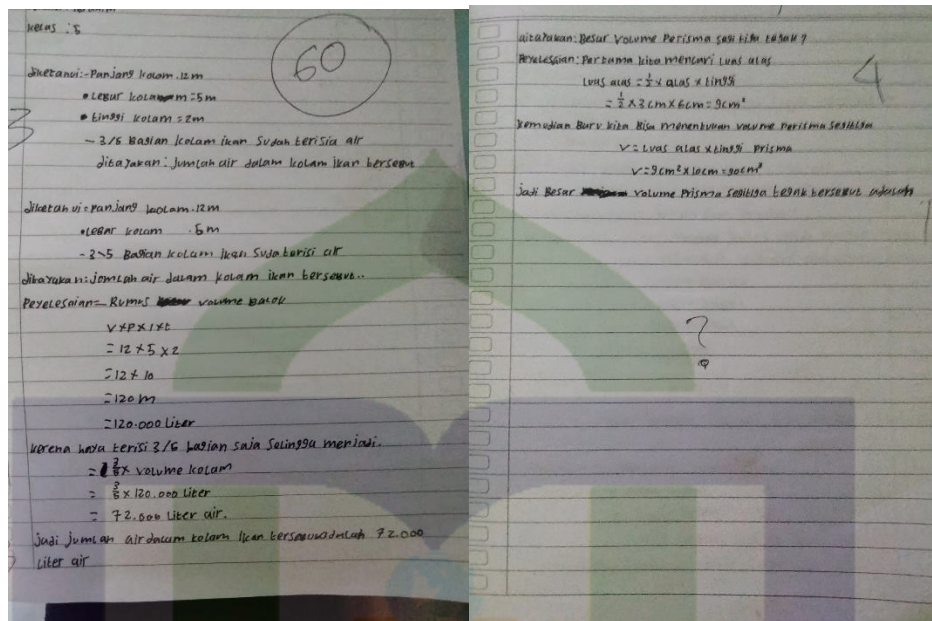 kelas : 5
60
diketahui:-Panjang kolam.12m
• Lebur kolam=5m
• tinggi kolam = 2m
3
- 3/5 Bagian kolam ikan Sudah terisia air
ditayakan: Jumlah air dalam kolam ikan tersebut
diketah ui = Panjang kolam.12m
•Lebar kolam .5m
- 3-5 Bagian kolam ikan Suda terisi air
ditayakan: jomlah air dalam kolam ikan tersebut..
Peyelesainn= Rumus volume Balok
V+P×l×t
=12×5×2
=12+10
=120 m
=120.000 Liter
karena haya terisi 3/5 bagian saja Selingga menjadi.
= 3/5× volume kolam
= 3/5 × 120.000 Liter
= 72.000 Liter air.
jadi jumlah air dalam kolam ikan tersebut adalah 72.000
Liter air
ditayakan: Besar Volume Perisma segitiga tegak ?
Peyelesaian: Pertama kita mencari Luas alas
4
Luas alas = 1/2 × alas × tinggi
= 1/2 × 3 cm × 6 cm = 9cm²
kemudian Buru kita Bisa menentukan volume Perisma Segitiga
V = Luas alas × tinggi Prisma
V = 9cm² × 10cm = 90cm³
Jadi Besar volume Prisma segitiga tegak tersebut adalah
?